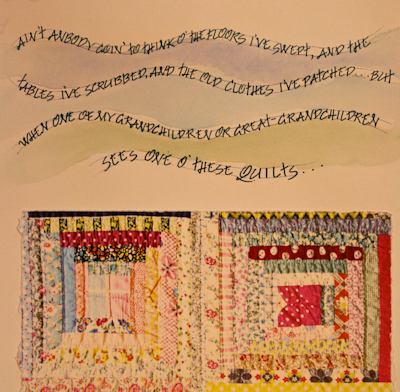 AIN'T ANBODY GOIN' TO THINK O' THE FLOORS I'VE SWEPT, AND THE
TABLES I'VE SCRUBBED, AND THE OLD CLOTHES I'VE PATCHED...BUT
WHEN ONE OF MY GRANDCHILDREN OR GREAT-GRANDCHILDREN
SEES ONE O' THESE QUILTS...